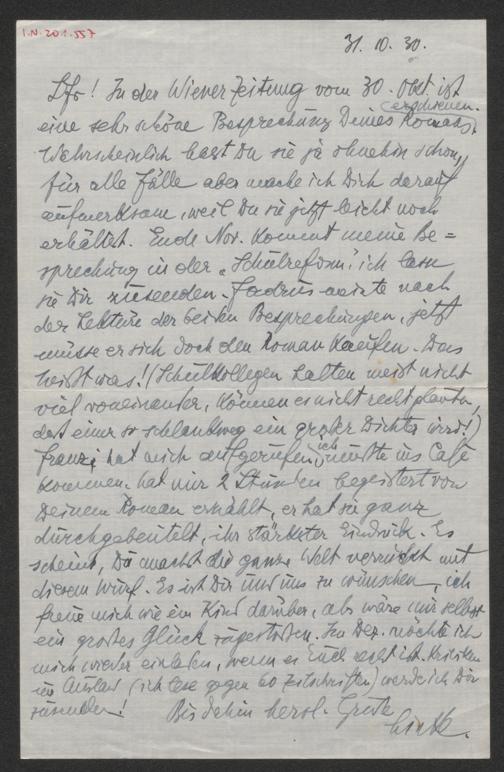 I.N. 201.557
31. 10. 30.
Lfr! In der Wiener Zeitung vom 30. Okt. ist
erschienen.
eine sehr schöne Besprechung Deines Romans.
Wahrscheinlich hast Du sie ja ohnehin schon,
für alle Fälle aber mache ich Dich darauf
aufmerksam, weil Du sie jetzt leicht noch
erhältst. Ende Nov. kommt meine Be=
sprechung in der "Schulreform", ich lasse
sie Dir zusenden. meinte nach
der Lektüre der beiden Besprechungen, jetzt
müsse er sich doch den Roman kaufen. Das
heißt was! (Schulkollegen halten meist nicht
viel voneinander, können es nicht recht glauben,
dass einer so schlankweg ein großer Dichter wird!)
Franzi hat mich aufgerufen, ich musste ins Café
kommen. hat mir 2 Stunden begeistert von
Deinem Roman erzählt, er hat sie ganz
durchgebeutelt, ihr stärkster Eindruck. Es
scheint, Du machst die ganze Welt verrückt mit
diesem Wurf. Es ist Dir und uns zu wünschen, ich
freue mich wie ein Kind darüber, als wäre mir selbst
ein großes Glück zugestoßen. Im Dez. möchte ich
mich wieder einladen, wenn es Euch recht ist. Kritiken
im Ausland (ich lese gegen 60 Zeitschriften) werde ich Dir
zusenden! Bis dahin herzl. Grüße